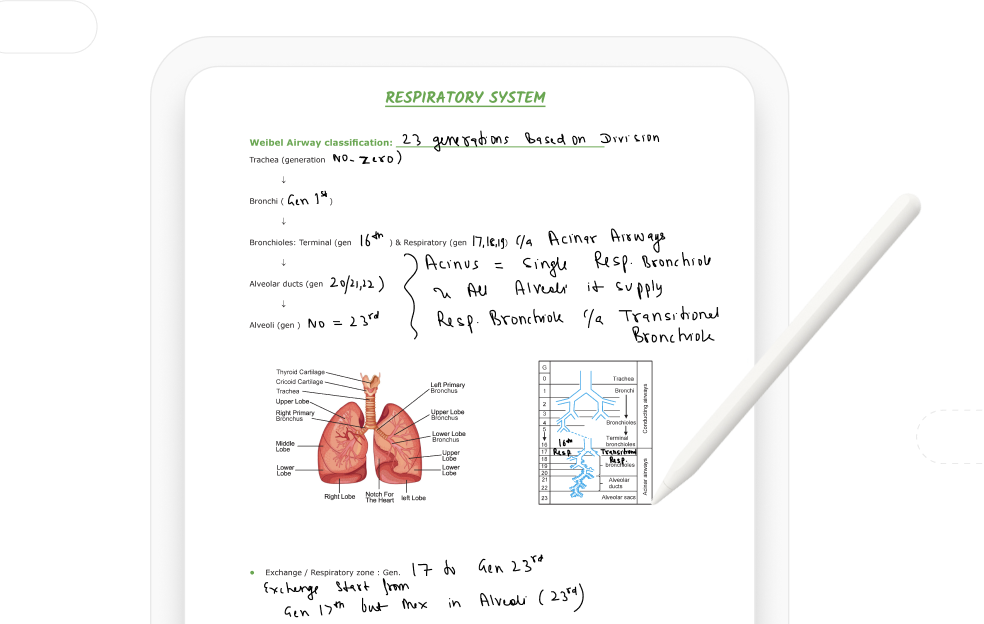 RESPIRATORY SYSTEM
Weibel Airway classification: 23 generations Based on Division
Trachea (generation NO- zero)
↓
Bronchi ( Gen 1st )
↓
Bronchioles: Terminal (gen 16th ) & Respiratory (gen 17,18,19) c/a Acinar Airways
↓
Acinus = single Resp. Bronchiole
Alveolar ducts (gen 20/21,22)
& All Alveoli it supply
↓
Alveoli (gen ) NO = 23rd
Resp. Bronchiole c/a Transitional
Bronchiole
Thyroid Cartilage
Cricoid Cartilage
Trachea
Upper Lobe
Right Primary
Bronchus
Middle
Lobe
Lower
Lobe
Right Lobe
Notch For
The Heart
left Lobe
Left Primary
Bronchus
Upper Lobe
Bronchus
Lower Lobe
Bronchus
Upper
Lobe
Lower
Lobe
G
0 Trachea
1 Bronchi
2
3
4 Bronchioles
5
16 16th Terminal
bronchioles
17 Resp Transitional
18 Resp.
19 bronchioles
20
21 Alveolar
22 ducts
23 Alveolar sacs
Conducting airways
Acinar airways
• Exchange / Respiratory zone : Gen. 17 to Gen 23rd
Exchange start from
Gen 17th but max in Alveoli (23rd)